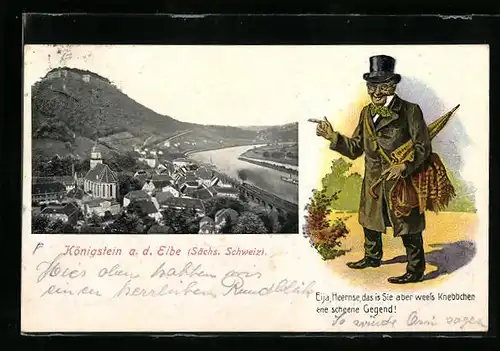 Königstein a. d. Elbe (Sächs. Schweiz).
Hier oben hatten wir
einen herrlichen Rundblick
Eija, Heernse, das is Sie aber weeß Knebbchen
ene scheene Gegend!
So würde sagen